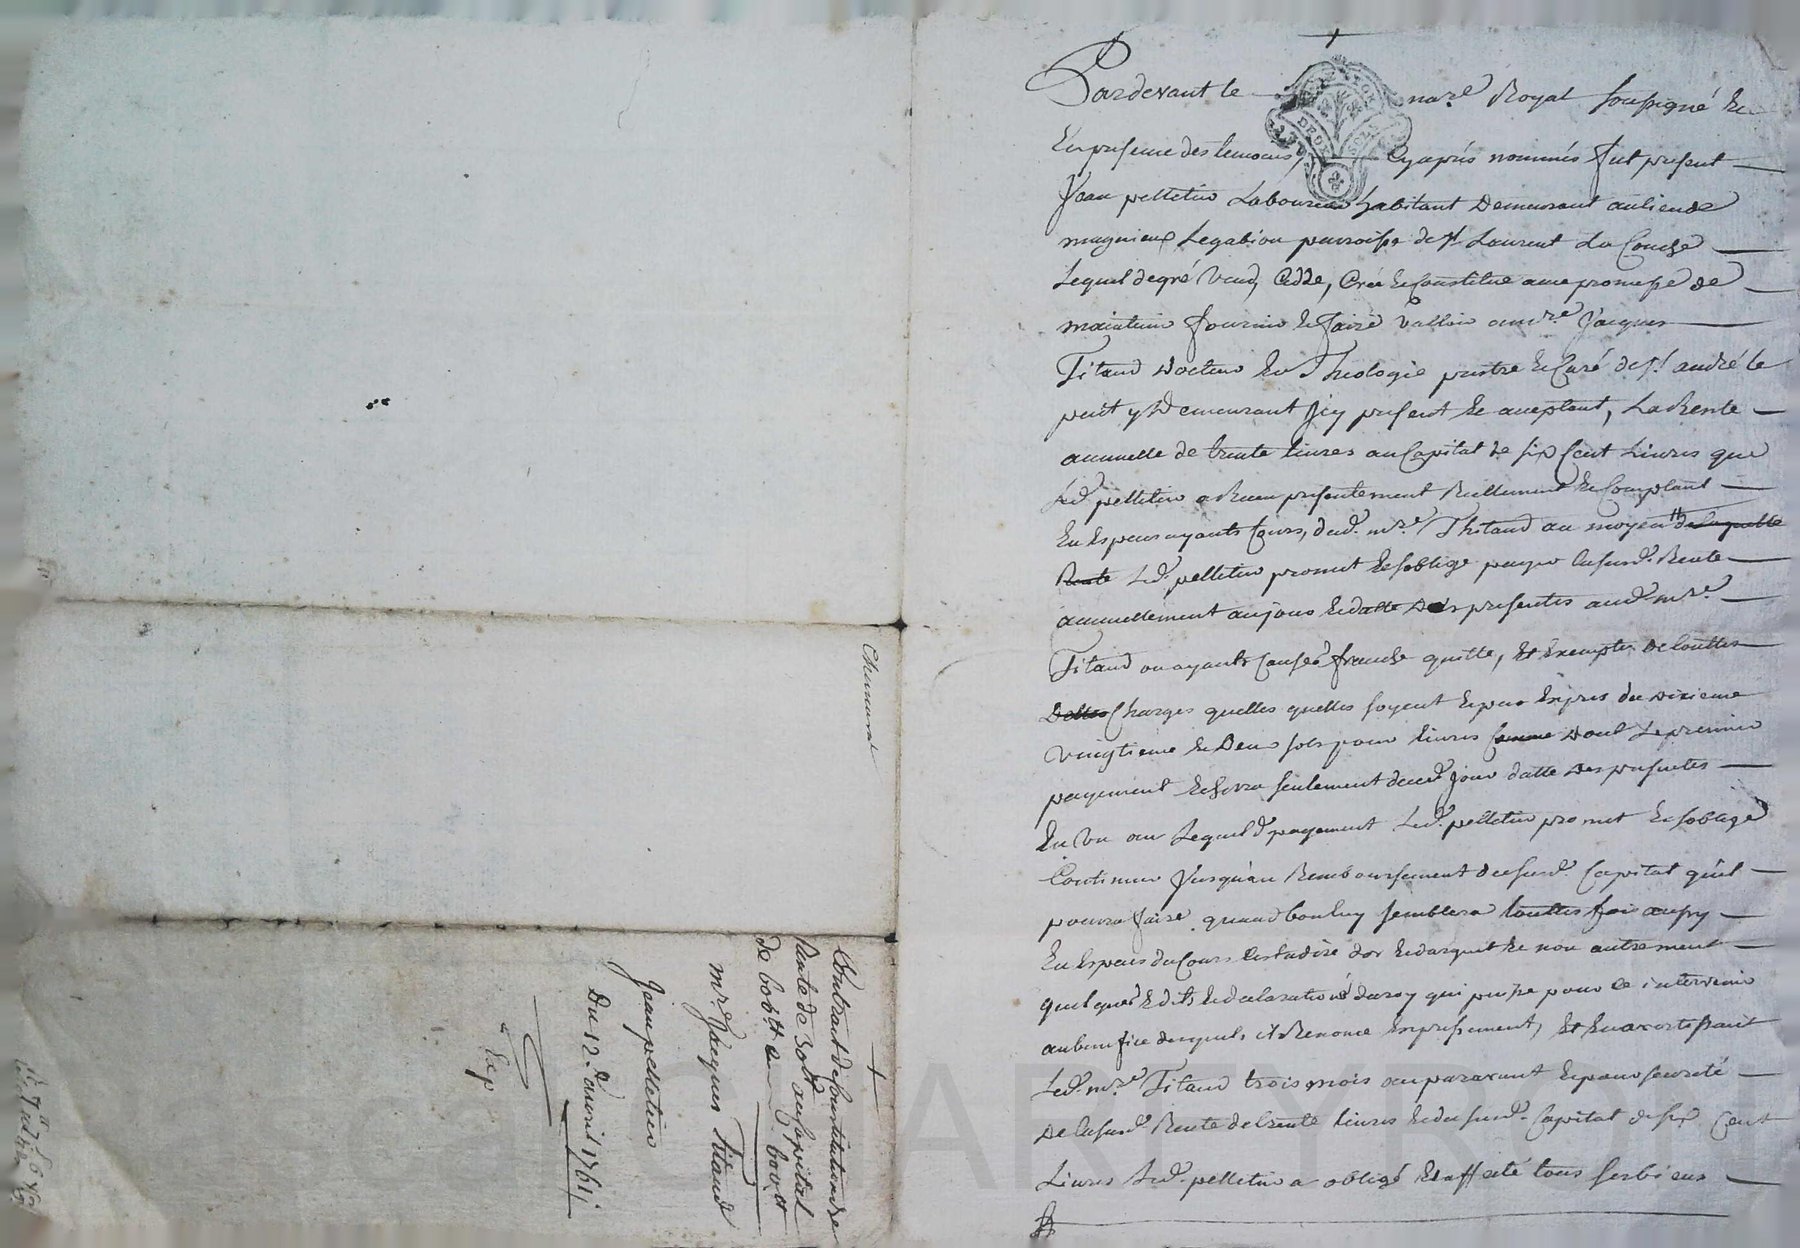 Pardevant le nare Royal soussigné Et
En presence des temoins, Cyaprés nommés fut present
Jean pelletier Laboureur habitant Demeurant au lieu de
magnieux Legabion parroisse de st Laurent La Conche
Lequel de gré Vend, Cedde, Créé Et Constitue avec promesse de
maintenir fournir Et faire Valloir a mre Jacques
Titaud Docteur En Theologie prestre Et Curé de st andré le
puit y Demeurant Jcy present Et aceptant, La Rente
annuelle de trente livres au Capital de six Cent Livres que
Led. pelletier a Receu presentement Reellement Et Comptant
En Especes ayants Cours, dud. mre Thitaud au moyen de laquelle
Rente Led. pelletier promet Et soblige payer lasusd. Rente
annuellement au jour Et datte Des presentes aud. mre
Titaud ou ayants Causes franche quitte, Et Exempte De touttes
Dettes Charges quelles quelles soyent Et par Exprés du dixieme
vingtieme Et Deux sols pour livres Comme Dont Le premier
payement Echerra seulement de ced. jour datte Des presentes
En Un an Lequel d. payement Led. pelletier promet Et soblige
Continuer Jusqu'au Remboursement du susd. Capital qu'il
pourra faire quand bon luy semblera touttes fois aussy
En Especes du Cours Cest a dire dor Et dargent Et non autrement
quelques Edits Et declarations du roy qui puisse pour ce intervenir
au benefice desquels il Renonce Expressement, Et En avertissant
Led. mre Titaud trois mois auparavant Et pour seureté
De lasusd. Rente de trente livres Et du susd. Capital de six Cent
Livres Led. pelletier a obligé Et affecté tous ses biens
Chenneval
Contrat de Constitution de
Rente de 30tt au Capital
de 600tt En 600tt
mre Jacques Titaud
Jean pelletier
Du 12e avril 1761
Exp
CHAREYRON